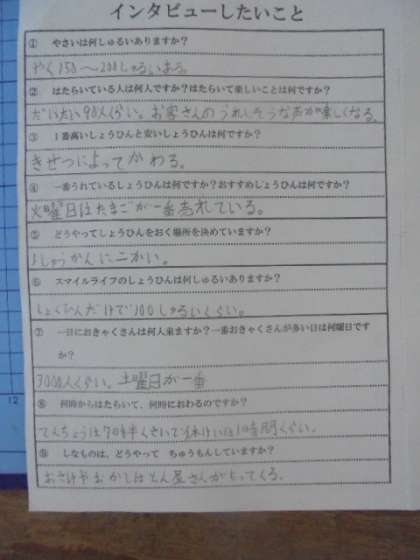 インタビューしたいこと
① やさいは何しゅるいありますか?
やく150～200しゅるいある。
② はたらいている人は何人ですか?はたらいて楽しいことは何ですか?
だいたい90人くらい。お客さんのうれしそうな声が楽しくなる。
③ 1番高いしょうひんと安いしょうひんは何ですか?
きせつによってかわる。
④ 一番うれているしょうひんは何ですか?おすすめしょうひんは何ですか?
火曜日はたまごが一番売れている。
⑤ どうやってしょうひんをおく場所を決めていますか?
1しゅうかんに二かい。
⑥ スマイルライフのしょうひんは何しゅるいありますか?
しょくひんだけで100しゅるいくらい。
⑦ 一日におきゃくさんは何人来ますか?一番おきゃくさんが多い日は何曜日です
か?
3000人くらい。土曜日が一番
⑧ 何時からはたらいて、何時におわるのですか?
てんちょうは7時半くらいで休けいは1時間くらい。
⑨ しなものは、どうやって ちゅうもんしていますか?
おさけやおかしはとん屋さんがもってくる。
12